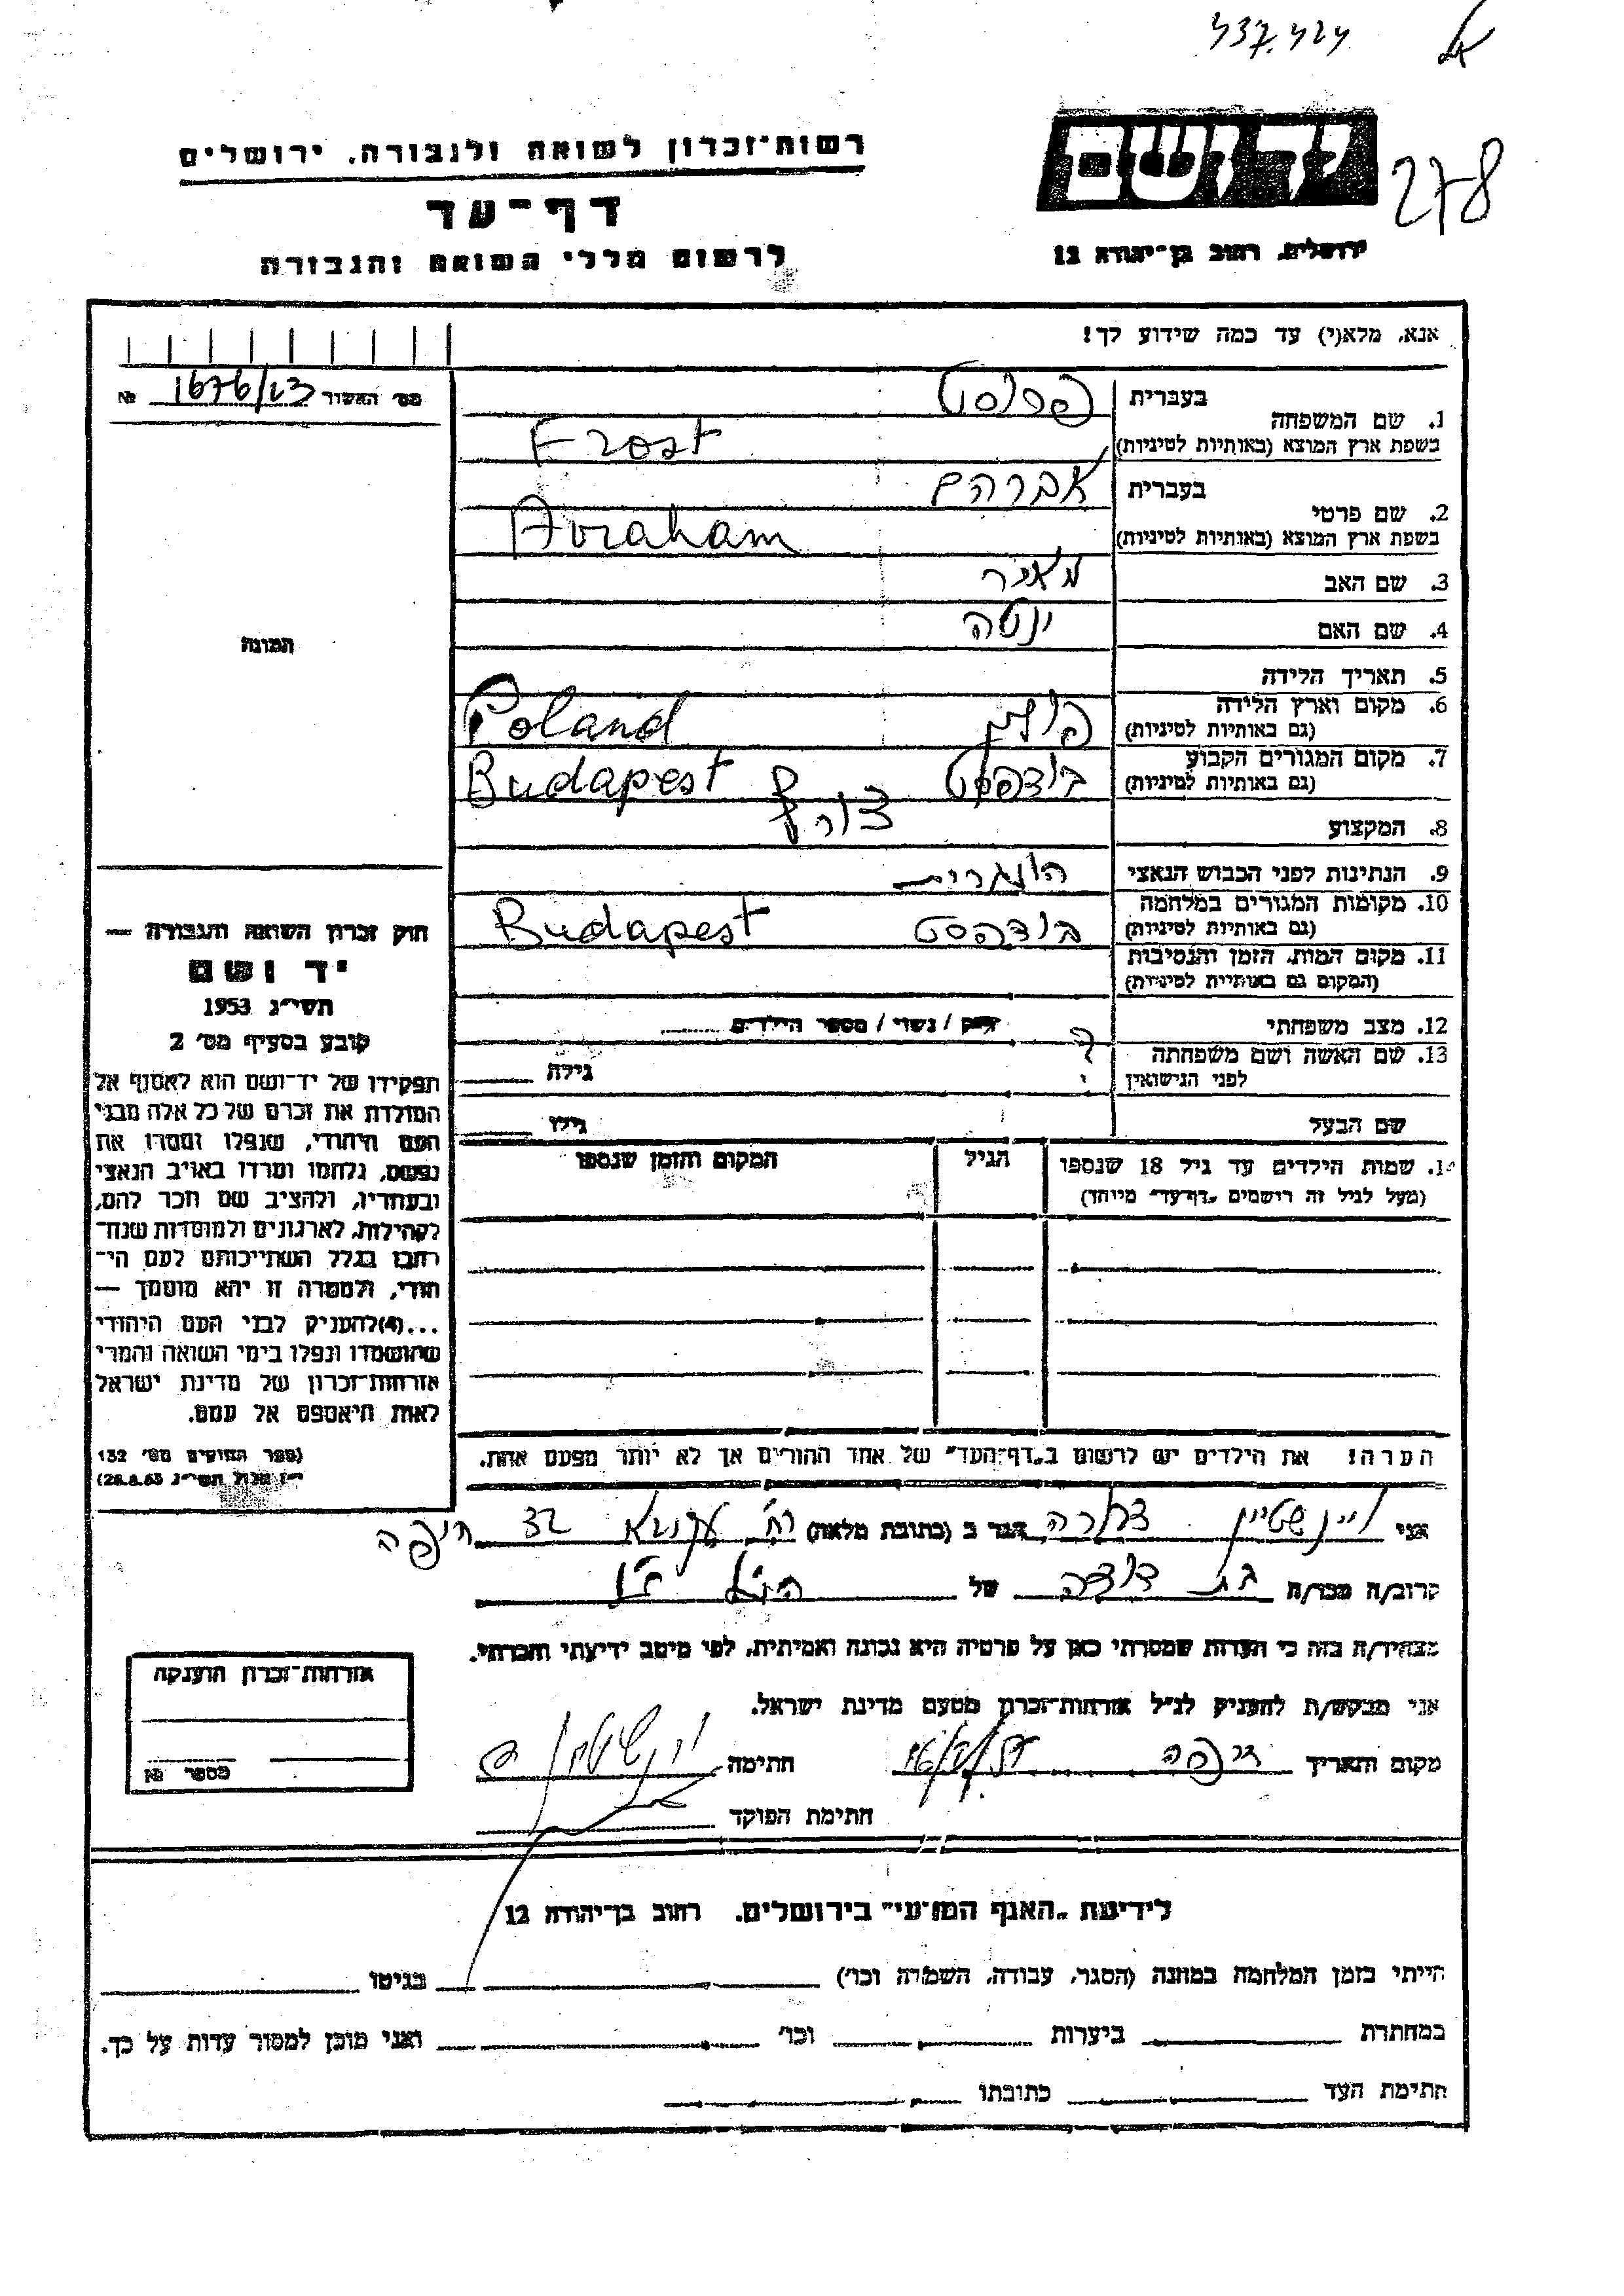 רשות־זכרון לשואה ולגבורה, ירושלים
דף־עד
לרשום חללי השואה והגבורה
ידושם
278
ירושלים, רחוב בן־יהודה 12
אנא, מלא(י) עד כמה שידוע לך!
מס׳ האשור 1676/23 №
1. שם המשפחה
בעברית פרוסט
בשפת ארץ המוצא (באותיות לטיניות) Frost
2. שם פרטי
בעברית אברהם
בשפת ארץ המוצא (באותיות לטיניות) Avraham
3. שם האב מאיר
4. שם האם ינטה
5. תאריך הלידה
6. מקום וארץ הלידה
(גם באותיות לטיניות) פולין Poland
7. מקום המגורים הקבוע
(גם באותיות לטיניות) בודפסט Budapest
8. המקצוע צורף
9. הנתינות לפני הכבוש הנאצי הונגרית
10. מקומות המגורים במלחמה
(גם באותיות לטיניות) בודפסט Budapest
11. מקום המות, הזמן והנסיבות
(המקום גם באותיות לטיניות)
12. מצב משפחתי רווק / נשוי / מספר הילדים
13. שם האשה ושם משפחתה
לפני הנישואין ? גילה
שם הבעל גילו
שמות הילדים עד גיל 18 שנספו
(מעל לגיל זה רושמים „דף־עד״ מיוחד)
הגיל
המקום והזמן שנספו
הערה! את הילדים יש לרשום ב„דף־העד״ של אחד ההורים אך לא יותר מפעם אחת.
תמונה
חוק זכרון השואה והגבורה —
יד ושם
תשי״ג 1953
קובע בסעיף מס׳ 2
תפקידו של יד־ושם הוא לאסוף אל
המולדת את זכרם של כל אלה מבני
העם היהודי, שנפלו ומסרו את
נפשם, נלחמו ומרדו באויב הנאצי
ובעוזריו, ולהציב שם וזכר להם,
לקהילות, לארגונים ולמוסדות שנח־
רבו בגלל השתייכותם לעם הי־
הודי, ולמטרה זו יהא מוסמך —
...(4)להעניק לבני העם היהודי
שהושמדו ונפלו בימי השואה והמרי
אזרחות־זכרון של מדינת ישראל
לאות היאספם אל עמם.
(ספר החוקים מס׳ 132
אני ויינשטיין הגר ב (כתובת מלאה) רח׳ עקיבא 32 חיפה
קרוב/ה מכר/ה בת דודה של הנ״ל
מצהיר/ה בזה כי העדות שמסרתי כאן על פרטיה היא נכונה ואמיתית, לפי מיטב ידיעתי והכרתי.
אני מבקש/ת להעניק לנ״ל אזרחות־זכרון מטעם מדינת ישראל.
מקום ותאריך חיפה חתימה
חתימת הפוקד
אזרחות־זכרון הוענקה
מספר №
לידיעת „האגף המדעי״ בירושלים, רחוב בן־יהודה 12
הייתי בזמן המלחמה במחנה (הסגר, עבודה, השמדה וכו׳) בגיטו
במחתרת ביערות וכו׳ ואני מוכן למסור עדות על כך.
חתימת העד כתובתו